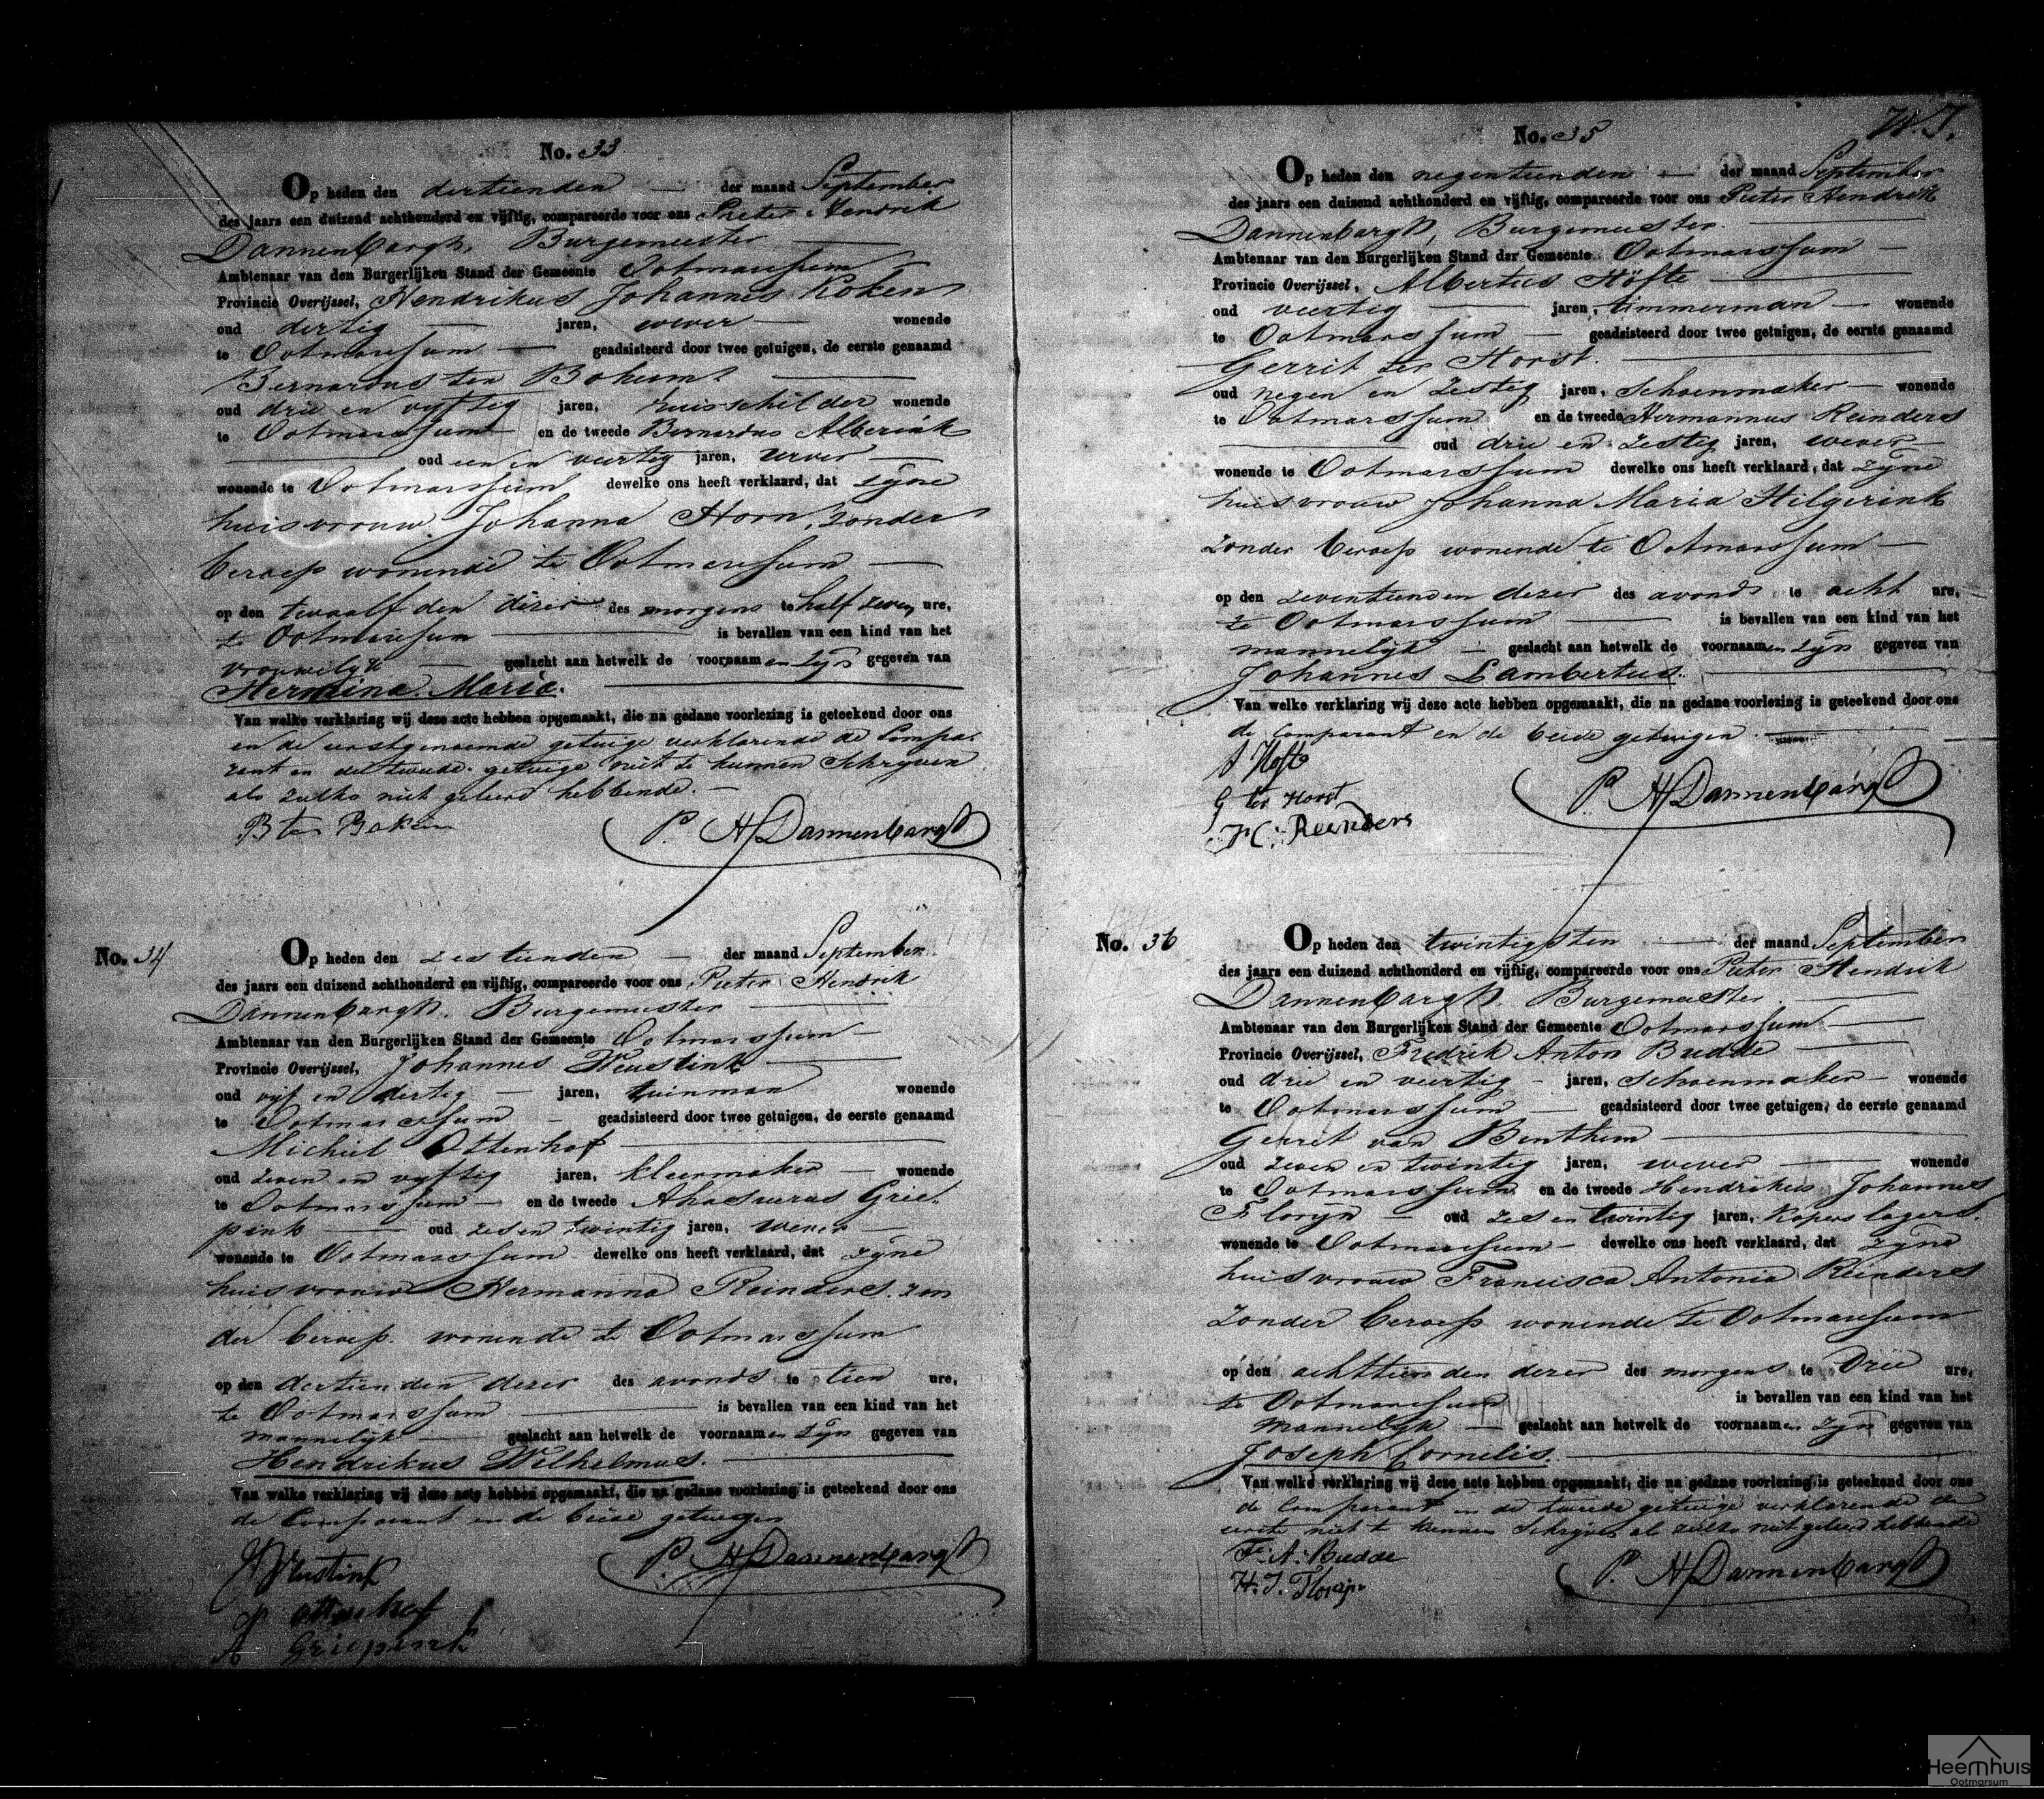 No. 33
Op heden den dertienden der maand September
des jaars een duizend achthonderd en vijftig, compareerde voor ons Pieter Hendrik
Dannenbargh, Burgemeester
Ambtenaar van den Burgerlijken Stand der Gemeente Ootmarssum
Provincie Overijssel, Hendrikus Johannes Koken
oud dertig jaren, wever wonende
te Ootmarssum geadsisteerd door twee getuigen, de eerste genaamd
Bernardus ten
oud drie en vyftig jaren, huisschilder wonende
te Ootmarssum en de tweede Bernardus Alberink
oud een en veertig jaren, wever
wonende te Ootmarssum dewelke ons heeft verklaard, dat zyne
huisvrouw Johanna Horn, zonder
beroep wonende te Ootmarssum
op den twaalfden dezer des morgens te half zeven ure,
te Ootmarssum is bevallen van een kind van het
vrouwelyk geslacht aan hetwelk de voornaamen zyn gegeven van
Hermina Maria.
Van welke verklaring wij deze acte hebben opgemaakt, die na gedane voorlezing is geteekend door ons
en de eerstgenoemde getuige verklarende de Compa-
rant en de tweede getuige niet te kunnen schryven
als zulks niet geleerd hebbende.
B ten Boken
P. H Dannenbargh
No. 34
Op heden den zestienden der maand September
des jaars een duizend achthonderd en vijftig, compareerde voor ons Pieter Hendrik
Dannenbargh, Burgemeester
Ambtenaar van den Burgerlijken Stand der Gemeente Ootmarssum
Provincie Overijssel, Johannes Heustink
oud vyf en dertig jaren, tuinman wonende
te Ootmarssum geadsisteerd door twee getuigen, de eerste genaamd
Michiel Ottenhof
oud zeven en vyftig jaren, kleermaker wonende
te Ootmarssum en de tweede Ahasuerus Griet-
pink oud zes en twintig jaren, wever
wonende te Ootmarssum dewelke ons heeft verklaard, dat zyne
huisvrouw Hermanna Reinders, zon
der beroep wonende te Ootmarssum
op den dertienden dezer des avonds te tien ure,
te Ootmarssum is bevallen van een kind van het
mannelyk geslacht aan hetwelk de voornaamen zyn gegeven van
Hendrikus Wilhelmus.
Van welke verklaring wij deze acte hebben opgemaakt, die na gedane voorlezing is geteekend door ons
de Comparant en de beide getuigen
P. H Dannenbargh
Ottenhof
A Griepink
No. 35
Op heden den negentienden der maand September
des jaars een duizend achthonderd en vijftig, compareerde voor ons Pieter Hendrik
Dannenbargh, Burgemeester
Ambtenaar van den Burgerlijken Stand der Gemeente Ootmarssum
Provincie Overijssel, Albertus Höfte
oud veertig jaren, timmerman wonende
te Ootmarssum geadsisteerd door twee getuigen, de eerste genaamd
Gerrit ter Horst.
oud negen en zestig jaren, schoenmaker wonende
te Ootmarssum en de tweede Hermannus Reinders
oud drie en zestig jaren, wever
wonende te Ootmarssum dewelke ons heeft verklaard, dat zyne
huisvrouw Johanna Maria Hilgerink
zonder beroep wonende te Ootmarssum
op den zeventienden dezer des avonds te acht ure,
te Ootmarssum is bevallen van een kind van het
mannelyk geslacht aan hetwelk de voornaamen zyn gegeven van
Johannes Lambertus.
Van welke verklaring wij deze acte hebben opgemaakt, die na gedane voorlezing is geteekend door ons
de Comparant en de beide getuigen.
A Hofte
G ter Horst
H: Reinders
P. H Dannenbargh
No. 36
Op heden den twintigsten der maand September
des jaars een duizend achthonderd en vijftig, compareerde voor ons Pieter Hendrik
Dannenbargh, Burgemeester
Ambtenaar van den Burgerlijken Stand der Gemeente Ootmarssum
Provincie Overijssel, Fredrik Anton Budde
oud drie en veertig jaren, schoenmaker wonende
te Ootmarssum geadsisteerd door twee getuigen, de eerste genaamd
Gerrit van Benthem
oud zeven en twintig jaren, wever wonende
te Ootmarssum en de tweede Hendrikus Johannes
Floryn oud zes en twintig jaren, koperslager
wonende te Ootmarssum dewelke ons heeft verklaard, dat zyne
huisvrouw Francisca Antonia Reinders
zonder beroep wonende te Ootmarssum
op den achttienden dezer des morgens te drie ure,
te Ootmarssum is bevallen van een kind van het
mannelyk geslacht aan hetwelk de voornaamen zyn gegeven van
Joseph Cornelis.
Van welke verklaring wij deze acte hebben opgemaakt, die na gedane voorlezing is geteekend door ons
de Comparant en de tweede getuige verklarende de
eerste niet te kunnen schryven als zulks niet geleerd hebbende
F: A: Budde
H. J. Florijn
P. H Dannenbargh
Heemhuis
Ootmarsum